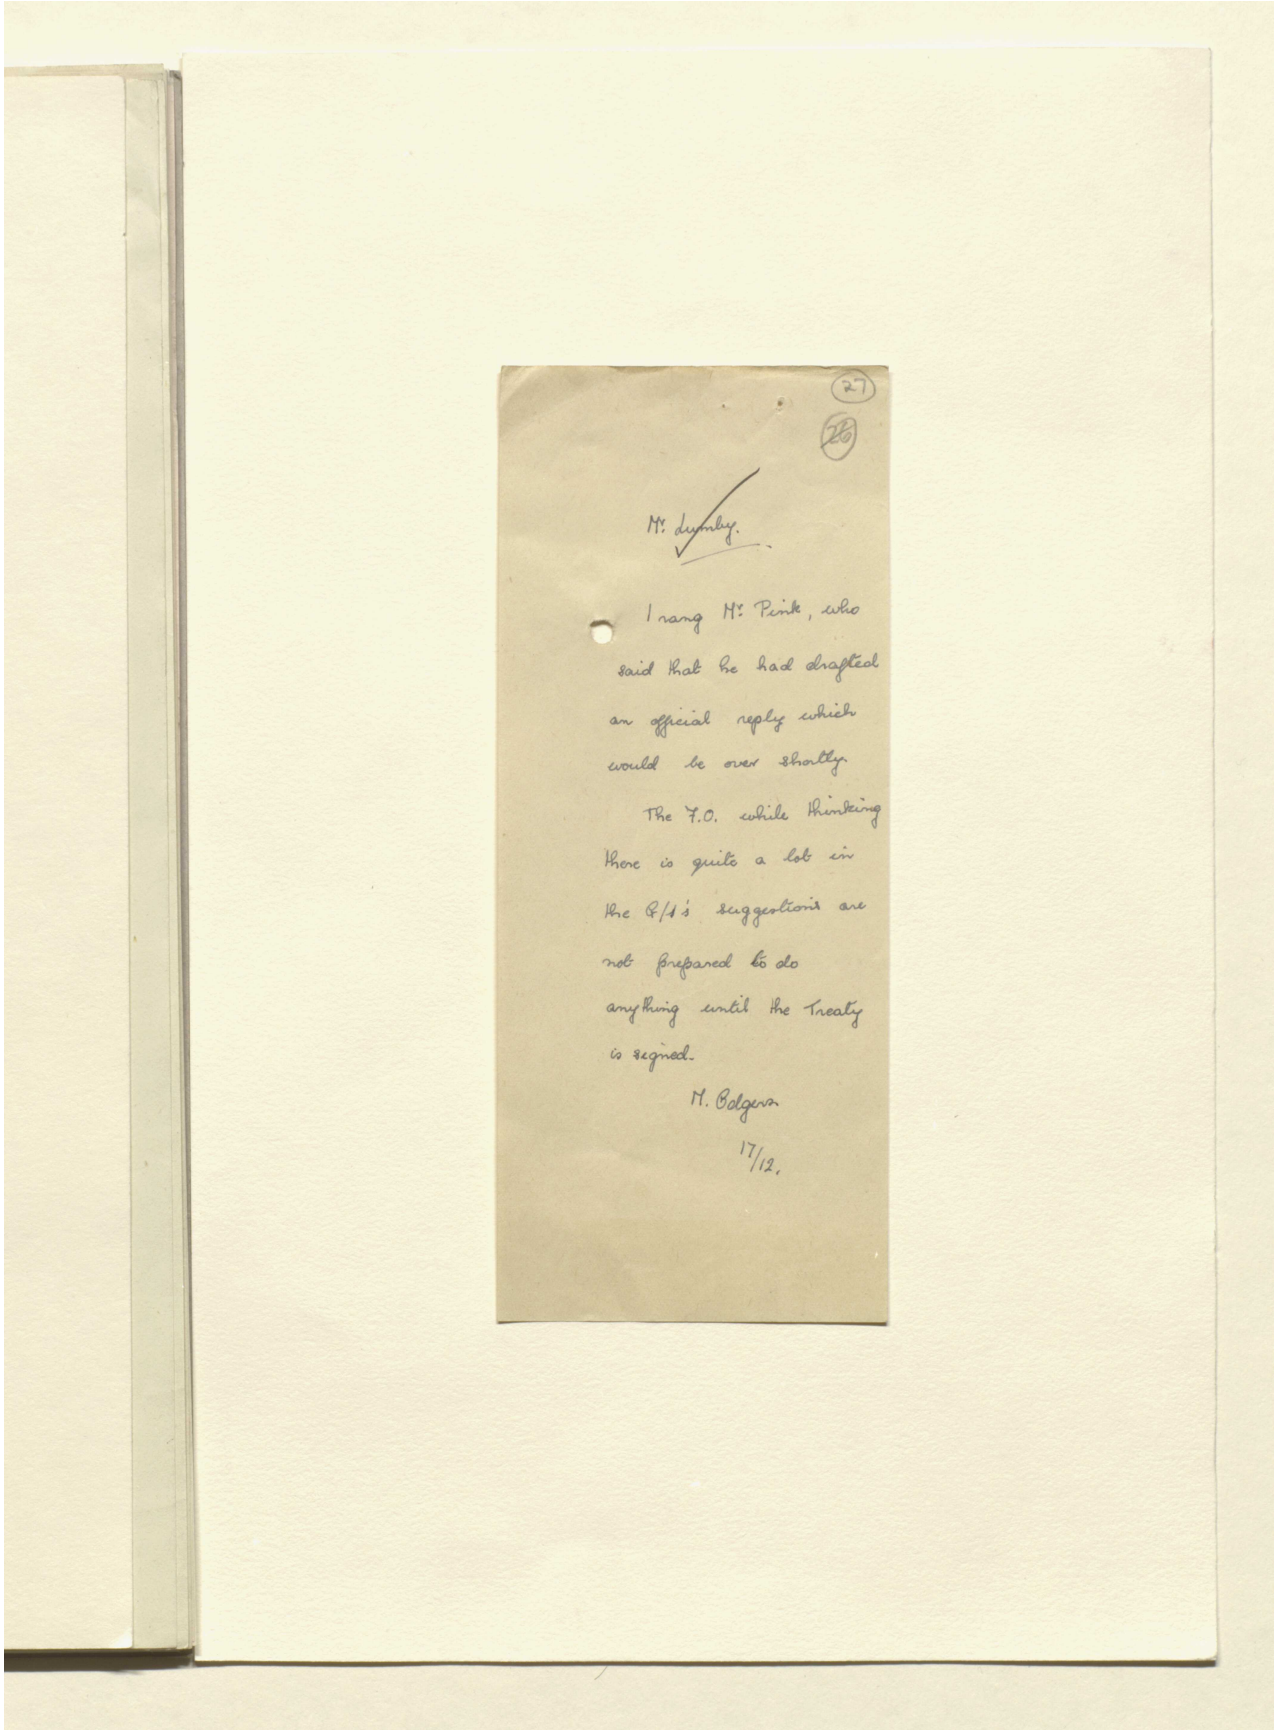 27
26
Mr. Lumby.
I rang Mr. Pink, who
said that he had drafted
an official reply which
would be over shortly.
The F.O. while thinking
there is quite a lot in
the G/I's suggestions are
not prepared to do
anything until the Treaty
is signed.
M. Odgers
17/12.